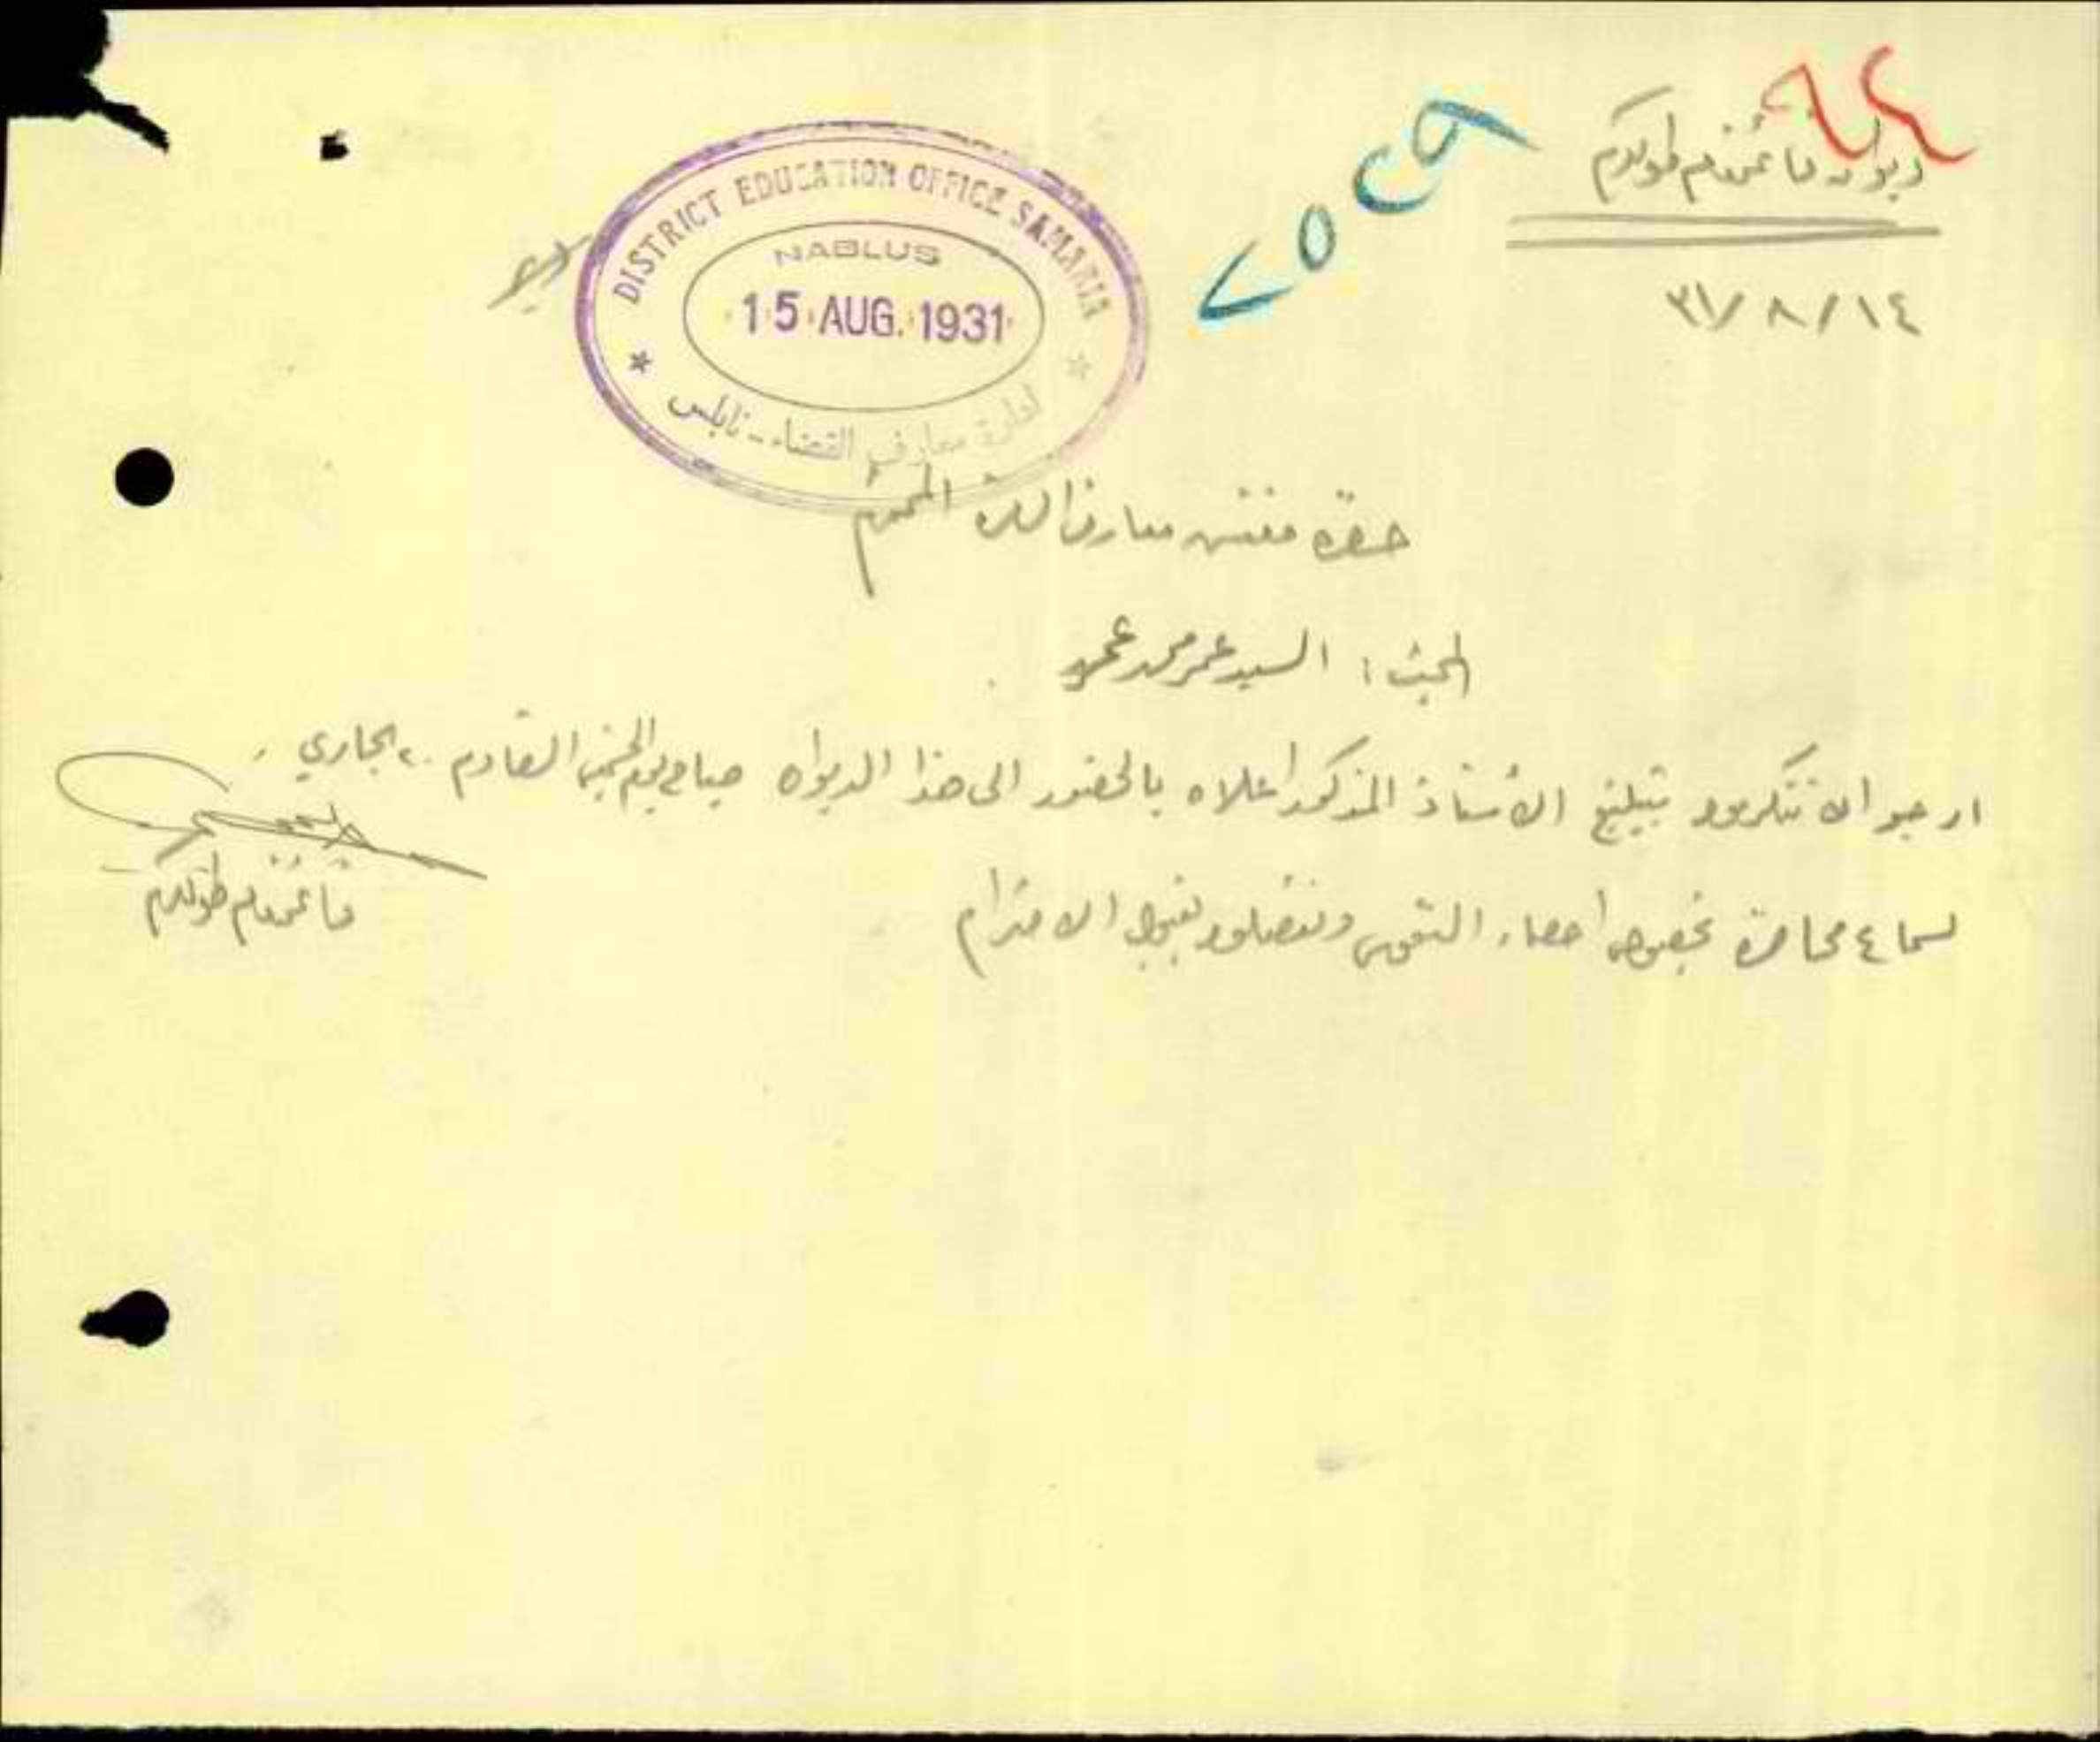 ديوان قائمقام طولكرم
١٤/٨/٣١
DISTRICT EDUCATION OFFICE SAMARIA
NABLUS
15 AUG. 1931
ادارة معارف القضاء - نابلس
حضرة مفتش معارف اللواء المحترم
البحث : السيد عمر محمد
ارجو ان تتكرموا بتبليغ الأستاذ المذكور اعلاه بالحضور الى هذا الديوان صباح يوم الخميس القادم ٢٠ الجاري .
لسماع محاضرة بخصوص احصاء النفوس وتفضلوا بقبول الاحترام
قائمقام طولكرم